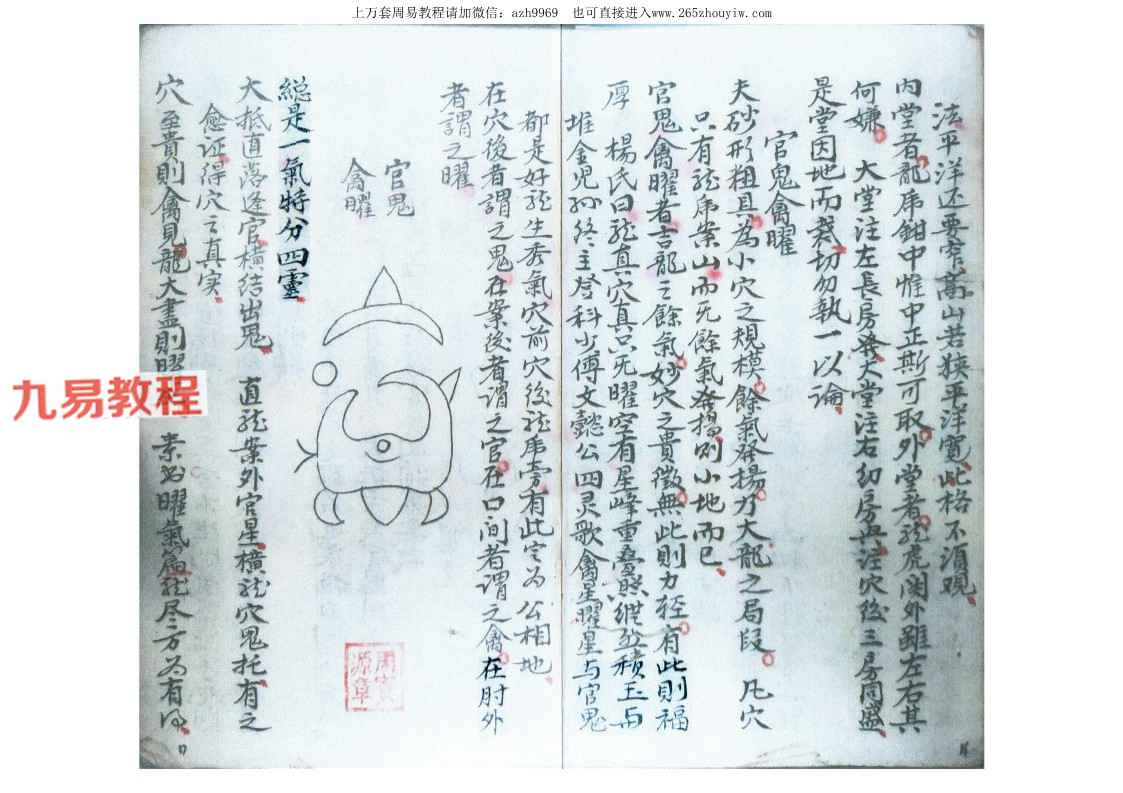 上万套周易教程请加微信：azh9969　也可直接进入www.265zhouyiw.com
法平洋还要窄高山若狭平洋宽此格不须观
内堂者龍虎钳中惟中正斯可取外堂者龙虎関外雖左右其
何嫌　大堂注左長房発大堂注右幼房興注穴後三房同盛
是堂因地而裁切勿執一以論
官鬼禽曜
夫砂形粗具為小穴之規模餘氣發揚乃大龍之局段　凡穴
只有龙虎案山而无餘氣发揚則小地而已
官鬼禽曜者言龍之餘氣妙穴之貴徵無此則力轻有此則福
厚　楊氏曰龙真穴真只无曜空有星峰重疊照縱然積玉与
堆金児孙终主登科少傅文懿公四灵歌禽星曜星与官鬼
都是好龙生秀氣穴前穴後龙虎旁有此定为公相地
在穴後者謂之鬼在案後者謂之官在口间者谓之禽在肘外
者謂之曜
官鬼
禽曜
総是一氣特分四靈
大抵直落逢官横结出鬼　直龙案外官星横龙穴鬼托有之
愈证得穴之真实
穴至貴則禽見龍大盡則曜　素书曜氣篇龙尽方为有
九易教程